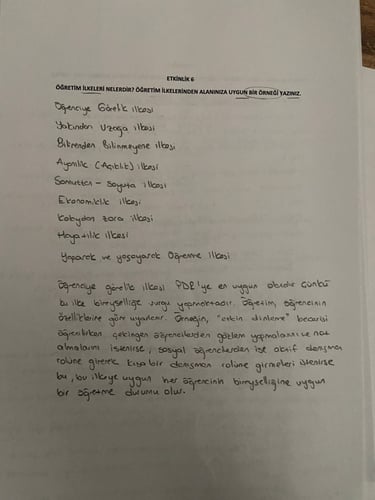 ETKİNLİK 6
ÖĞRETİM İLKELERİ NELERDİR? ÖĞRETİM İLKELERİNDEN ALANINIZA UYGUN BİR ÖRNEĞİ YAZINIZ.
Öğrenciye Görelik ilkesi
Yakından Uzağa ilkesi
Bilinenden Bilinmeyene ilkesi
Ayanilik (Açıklık) ilkesi
Somuttan - Soyuta ilkesi
Ekonomiklik ilkesi
Kolaydan zora ilkesi
Hayatilik ilkesi
Yaparak ve yaşayarak Öğrenme ilkesi
Öğrenciye görelik ilkesi PDR'ye en uygun olanıdır Çünkü
bu ilke bireyselliğe vurgu yapmaktadır. Öğretim, öğrencinin
özelliklerine göre uyarlanır. Örneğin, "etkin dinleme" becerisi
öğretilirken çekingen öğrencilerden gözlem yapmaları ve not
almalarını istenirse, sosyal öğrencilerden ise aktif danışman
rolüne girerek kısa bir danışman rolüne girmeleri istenirse
bu, bu ilkeye uygun her öğrencinin bireyselliğine uygun
bir öğretme durumu olur.